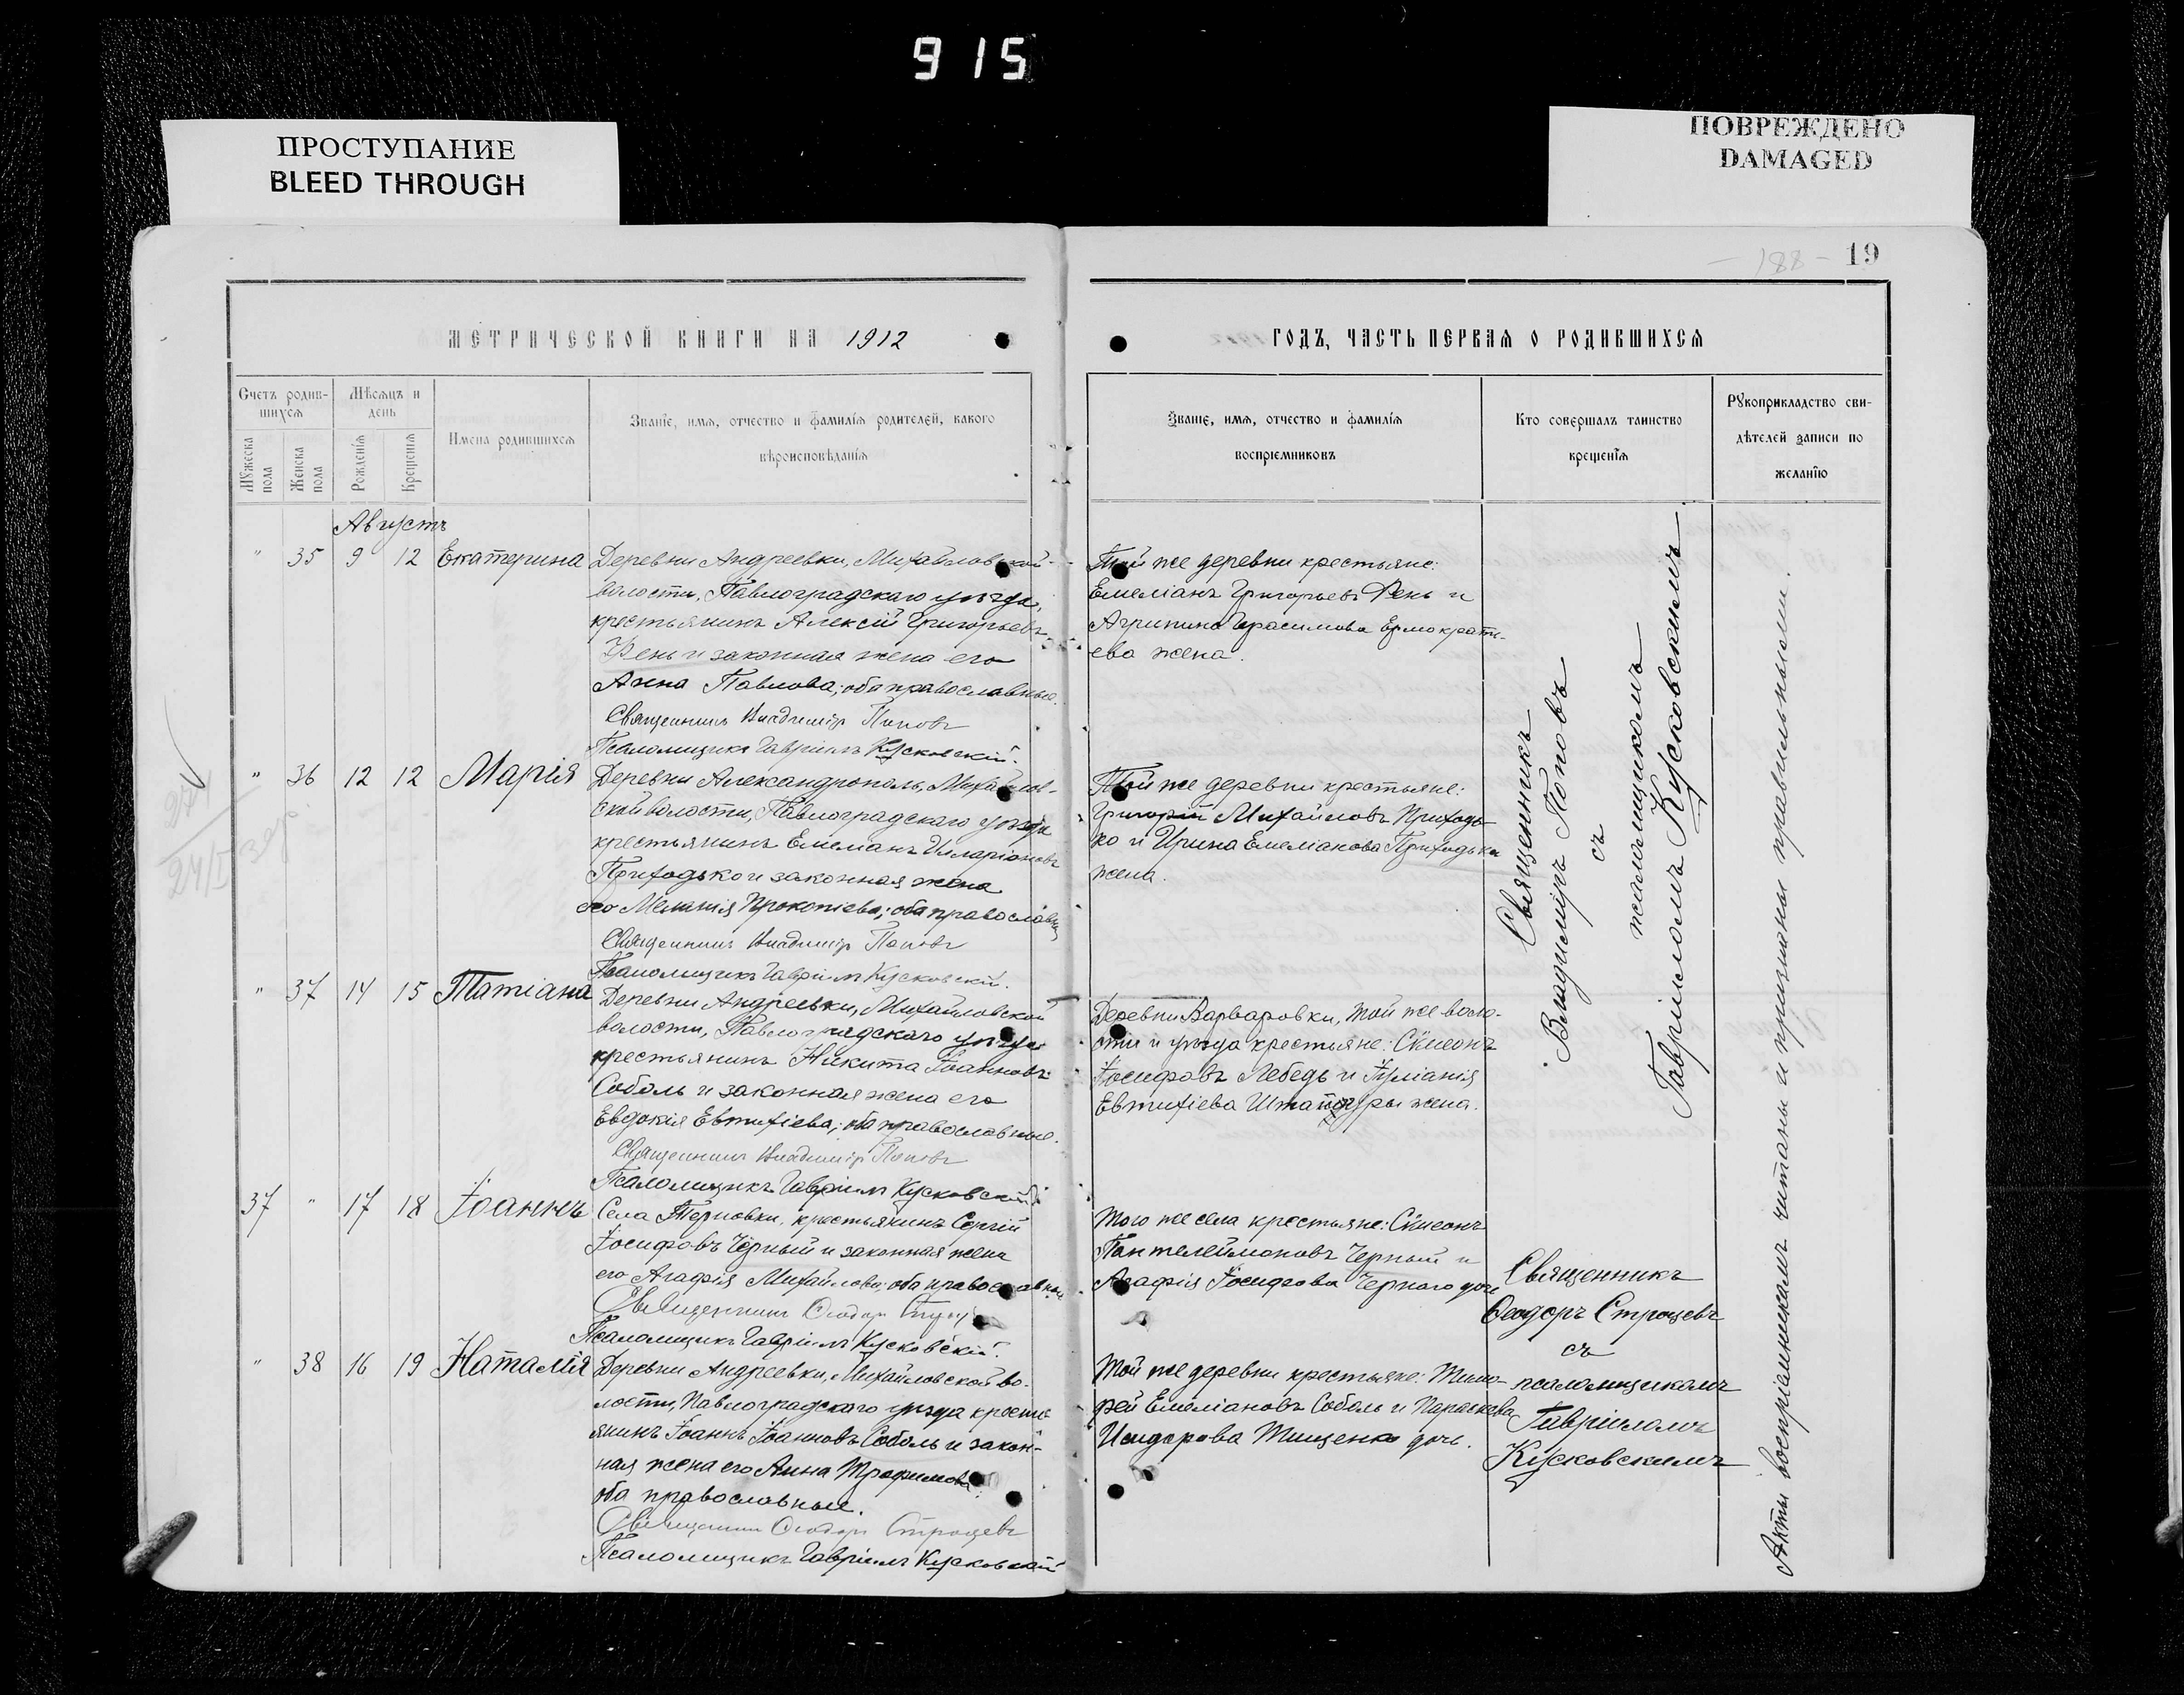 915
ПРОСТУПАНИЕ
BLEED THROUGH
ПОВРЕЖДЕНО
DAMAGED
— 188 — 19
МЕТРИЧЕСКОЙ КНИГИ НА 1912
Счетъ родив-
шихся
Мѣсяцъ и
день
Мужеска
пола
Женска
пола
Рожденія
Крещенія
Имена родившихся
Званіе, имя, отчество и фамилія родителей, какого
вѣроисповѣданія
Августъ
" 35 9 12 Екатерина
Деревни Андреевки, Михайловской
волости, Павлоградскаго уѣзда,
крестьянинъ Алексій Григорьевъ
Рень и законная жена его
Анна Павлова; оба православные.
Священникъ Владиміръ Поповъ
Псаломщикъ Гавріилъ Кусковскій.
" 36 12 12 Марія
Деревни Александрополь, Михайлов-
ской волости, Павлоградскаго уѣзда
крестьянинъ Емеліанъ Иларіоновъ
Приходько и законная жена
его Меланія Прокопіева; оба православны
Священникъ Владиміръ Поповъ
Псаломщикъ Гавріилъ Кусковскій.
" 37 14 15 Татіана
Деревни Андреевки, Михайловской
волости, Павлоградскаго уѣзда
крестьянинъ Никита Іоанновъ
Соболь и законная жена его
Евдокія Евтихіева; оба православные.
Священникъ Владиміръ Поповъ
Псаломщикъ Гавріилъ Кусковскій
37 " 17 18 Іоаннъ
Села Терновки, крестьянинъ Сергій
Іосифовъ Чёрный и законная жена
его Агафія Михайлова; оба православные
Священникъ Ѳеодоръ
Псаломщикъ Гавріилъ Кусковскій.
" 38 16 19 Наталія
Деревни Андреевки, Михайловской во-
лости, Павлоградскаго уѣзда кресть-
янинъ Іоаннъ Іоанновъ Соболь и закон-
ная жена его Анна Трофимова;
оба православные.
Священникъ Ѳеодоръ Строцевъ
Псаломщикъ Гавріилъ Кусковскій
ГОДЪ, ЧАСТЬ ПЕРВАЯ О РОДИВШИХСЯ
Званіе, имя, отчество и фамилія
воспріемниковъ
Кто совершалъ таинство
крещенія
Рукоприкладство сви-
дѣтелей записи по
желанію
Той же деревни крестьяне:
Емеліанъ Григорьевъ Рень и
Агрипина Герасимова Ермократи-
ева жена.
Той же деревни крестьяне:
Григорій Михайловъ Приходь-
ко и Ирина Емеліанова Приходька
жена.
Деревни Варваровки, той же воло-
сти и уѣзда крестьяне: Симеонъ
Іосифовъ Лебедь и Іуліанія
Евтихіева жена.
Того же села крестьяне: Симеонъ
Пантелеймоновъ Черный и
Агафія Іосифова Чернаго дочь
Той же деревни крестьяне: Тимо-
фей Емеліановъ Соболь и Параскева
Исидорова Тищенко дочь.
Священникъ
Владиміръ Поповъ
съ
псаломщикомъ
Гавріиломъ Кусковскимъ
Священникъ
Ѳеодоръ Строцевъ
съ
псаломщикомъ
Гавріиломъ
Кусковскимъ
Акты воспріемникамъ читаны и признаны правильными.